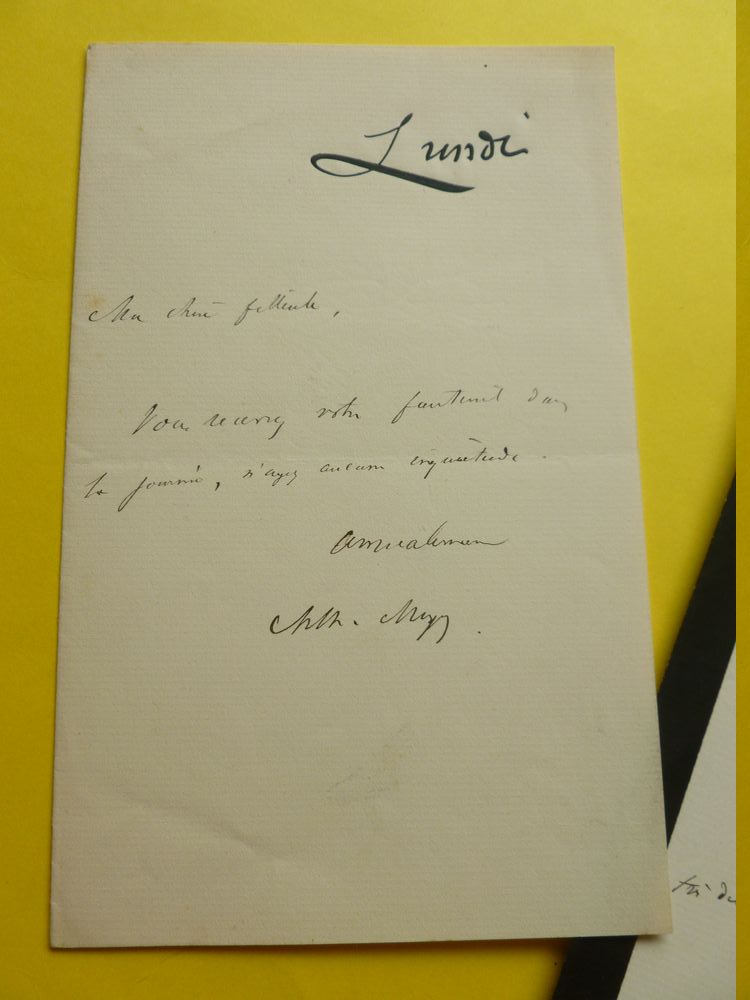 Lundi
Ma chère filleule,
Vous recevrez votre fauteuil dans
la journée, n'ayez aucune inquiétude.
Amicalement
Arth. Meyer.